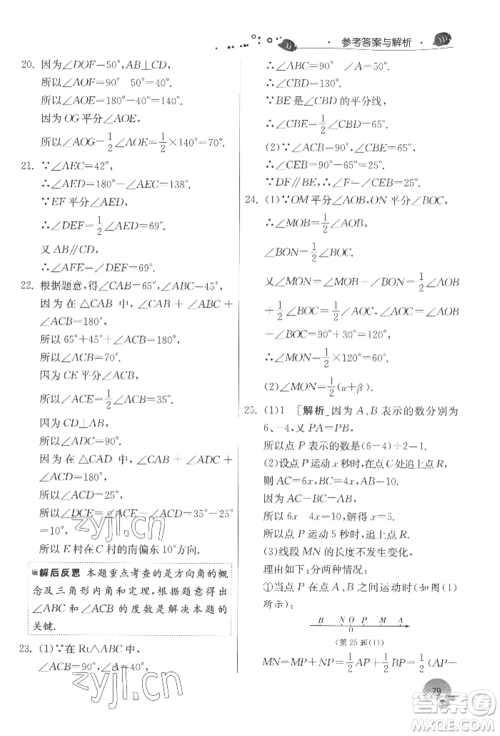 参考答案与解析
20. 因为∠DOF=50°,AB⊥CD,
所以∠AOF=90° 50°=40°.
所以∠AOE=180°-40°=140°.
因为 OG 平分∠AOE,
所以∠AOG=1/2∠AOE=1/2×140°=70°.
21. ∵∠AEC=42°,
∴∠AED=180°-∠AEC=138°.
∵EF 平分∠AED,
∴∠DEF=1/2∠AED=69°.
又 AB∥CD,
∴∠AFE=∠DEF=69°.
22. 根据题意,得∠BAC=65°,∠ABC=45°.
因为在△CAB 中,∠CAB+∠ABC+
∠ACB=180°,
所以 65°+45°+∠ACB=180°.
所以∠ACB=70°.
因为 CE 平分∠ACB,
所以∠ACE=1/2∠ACB=35°.
因为在△CAD 中,∠CAD+∠ADC+
∠ACD=180°,
所以∠ACD=25°.
所以∠DCE=∠ACE-∠ACD=35°-25°
=10°.
所以 E 村在 C 村的南偏东 10°方向.
解后反思 本题重点考查的是方向角的概
念及三角形内角和定理,根据题意得出
∠ABC和∠ACB 的度数是解决本题的
关键.
23. (1)∵在 Rt△ABC 中,
∠ACB=90°,∠A=40°,
∴∠CBD=∠ACB+∠A=90°+40°=
130°.
∵BE 是∠CBD 的平分线,
∴∠CBE=1/2∠CBD=65°.
(2)∵∠ACB=90°,∠CBE=65°,
∴∠CEB=90°-65°=25°.
∵DF∥BE,∴∠F=∠CEB=25°.
24. (1)∵OM 平分∠AOB,ON 平分∠BOC,
∴∠MOB=1/2∠AOB,
∠BON=1/2∠BOC.
又∠MON=∠MOB+∠BON=1/2(∠AOB
+∠BOC),
∴∠MON=1/2(90°+30°)=60°.
(2)∠MON=1/2(α+β).
25. (1)1 [解析]因为 A、B 表示的数分别为
6、-4,又 PA=PB,
所以点 P 表示的数(6-4)÷2=1.
(2)设点 P 运动 x 秒时,在点 C 处追上点
R,则 AC=6x,BC=4x.
因为 AC-BC=AB,
所以 6x 4x=10,解得 x=5.
所以点 P 运动 5 秒时,追上点 R.
(3)线段 MN 的长度不发生变化.
理由如下:分两种情况:
①当点 P 在点 A、B 之间运动时:
B N O P M A
(第 25 题(1))
MN=MP+NP=1/2AP+1/2BP=1/2(AP-
79
zyjl.cn